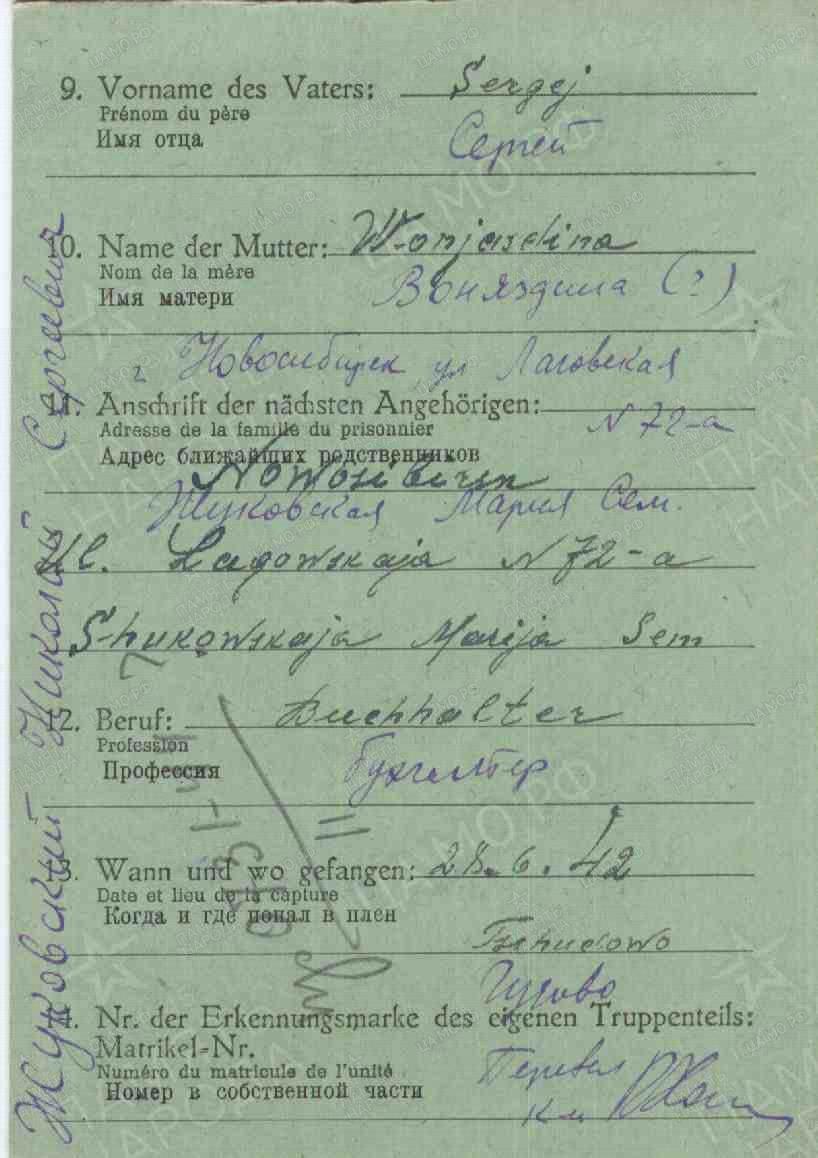 9. Vorname des Vaters: Sergej
Prénom du père
Имя отца Сергей
10. Name der Mutter: Wonjasdina
Nom de la mère Воняздина (?)
Имя матери
г. Новосибирск ул Лаговская
11. Anschrift der nächsten Angehörigen:
Adresse de la famille du prisonnier N 72-а
Адрес ближайших родственников
Nowosibirsk
Жуковская Мария Сем.
Ul. Lagowskaja N 72-a
Shukowskaja Marija Sem
12. Beruf: Buchhalter
Profession
Профессия бухгалтер
13. Wann und wo gefangen: 28.6.42
Date et lieu de la capture
Когда и где попал в плен
Tschudowo
Чудово
14. Nr. der Erkennungsmarke des eigenen Truppenteils:
Matrikel-Nr.
Numéro du matricule de l'unité Перевел
Номер в собственной части
Жуковский Николай Сергеевич